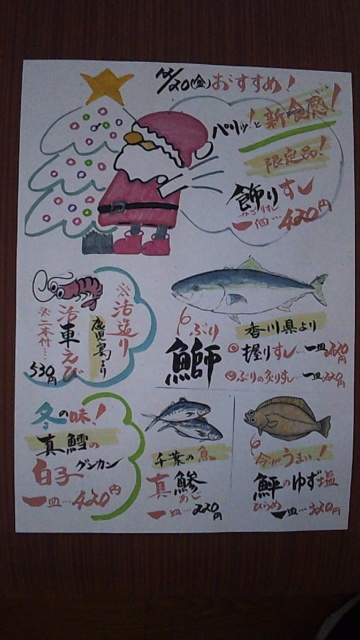 12/20(金)おすすめ!
パリッと新食感!
限定品!
飾りすし
一個…420円
活造り
鹿児島より
活車えび
※二本付…
530円
ぶり
鰤
香川県より
握りすし…一皿220円
ぶりの炙りすし…一皿220円
冬の味!
真鱈の
白子グンカン
一皿…420円
千葉の魚
真鯵
あじ
一皿…220円
今がうまい!
鮃のゆず塩
ひらめ
一皿…220円